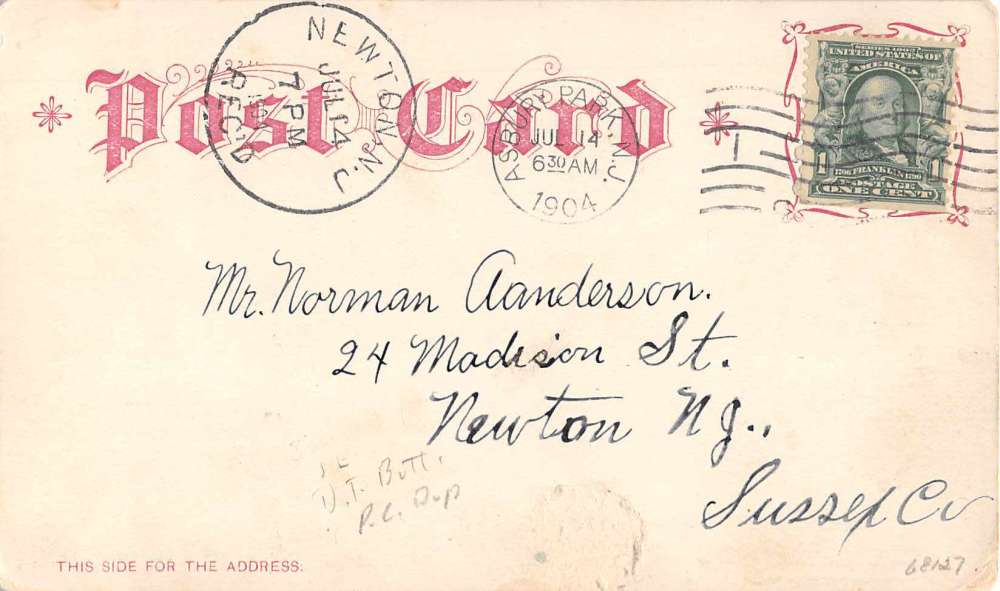 Post Card
NEWTON, N.J.
JUL 14
7 PM
1904
REC'D
ASBURY PARK, N.J.
JUL 14
6 30 AM
1904
SERIES 1902
UNITED STATES OF
AMERICA
1706 FRANKLIN 1790
POSTAGE
1 ONE CENT 1
Mr. Norman Aanderson.
24 Madison St.
Newton N J.,
Sussex Co
P.C. Dup
THIS SIDE FOR THE ADDRESS.
68127